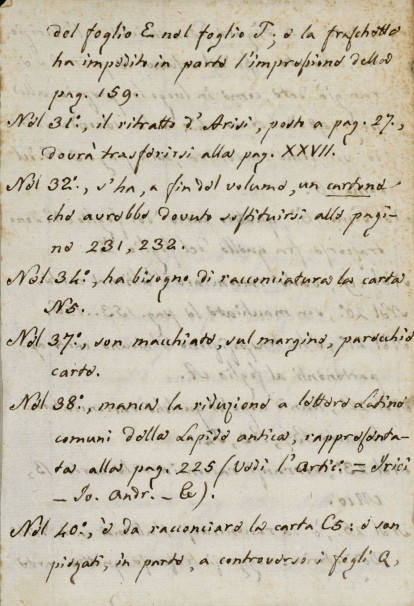 del foglio E nel foglio F; e la fraschetta
ha impedito in parte l'impressione della
pag. 159.
Nel 31º., il ritratto d'Arisi, posto a pag. 27.,
dovrà trasferirsi alla pag. XXVII.
Nel 32º., s'ha, a fin del volume, un cartone
che avrebbe dovuto sostituirsi alle pagi-
ne 231, 232.
Nel 34º., ha bisogno di racconciatura la carta
N5.
Nel 37º., son macchiate, sul margine, parecchie
carte.
Nel 38º., manca la riduzione a lettere Latine
comuni della Lapide antica, rappresenta-
ta alla pag. 225 (Vedi l'Artic. = Irici
- Jo. Andr. - &c).
Nel 40º., è da racconciare la carta C5: e son
piegati, in parte, a controverso i fogli Q,